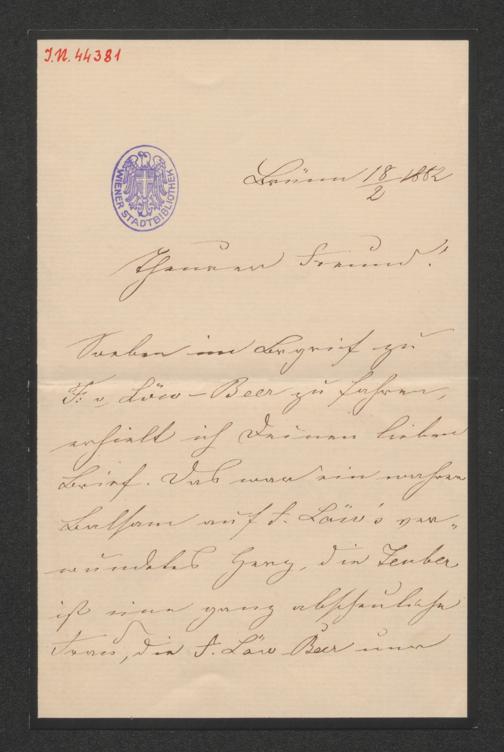 I.N. 44381
WIENER STADTBIBLIOTHEK
Brünn 18/2 1882
Theurer Freund!
Soeben im Begrif zu
F. v. Löw-Beer zu fahren,
erhielt ich Deinen lieben
Brief. Das war ein wahrer
Balsam auf F. Löw's ver-
wundetes Herz, die Teuber
ist eine ganz abscheuliche
Frau, die F. Löw Beer nur